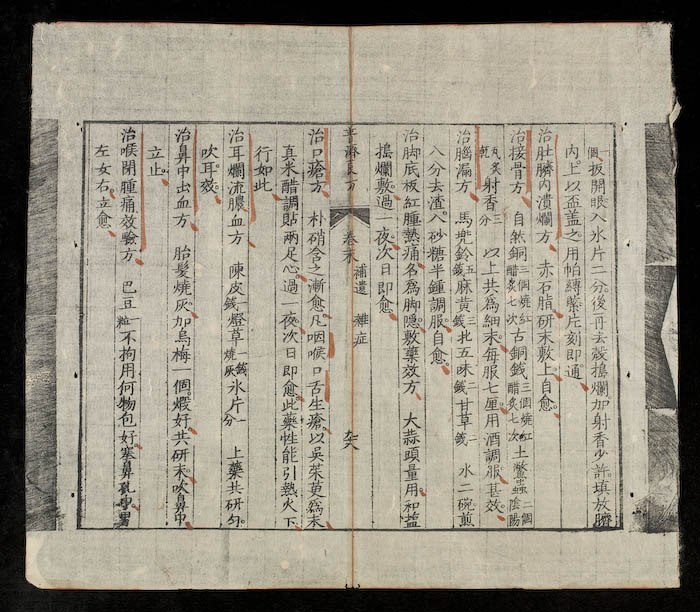 個扳開眼入氷片二分後再去殼搗爛加射香少許填放臍
內上以盃盖之用帕縛緊片刻即通
治肚臍內潰爛方 赤石脂研末敷上自愈
治接骨方 自然銅三個燒紅醋炙七次古銅錢三個燒紅醋炙七次土鱉蟲二個陰陽
瓦炙乾射香三分 以上共為細末每服七厘用酒調服甚效
治腦漏方 馬兜鈴五錢麻黄三錢北五味三錢甘草一錢 水二碗煎
八分去渣入砂糖半鍾調服自愈
治脚底板紅腫熱痛名為脚隱敷藥效方 大蒜頭量用和鹽
搗爛敷過一夜次日即愈
普濟良方 卷末 補遺 雜症
治口瘡方 朴硝含之漸愈凡咽喉口舌生瘡以吳茱萸為末
真米醋調貼兩足心過一夜次日即愈此藥性能引熱火下
行如此
治耳爛流膿血方 陳皮一錢燈草一錢燒灰氷片一分 上藥共研勻
吹耳效
治鼻中出血方 胎髮燒灰加烏梅一個煆好共研末吹鼻中
立止
治喉閉腫痛效驗方 巴豆一粒不拘用何物包好塞鼻孔中男
左女右立愈